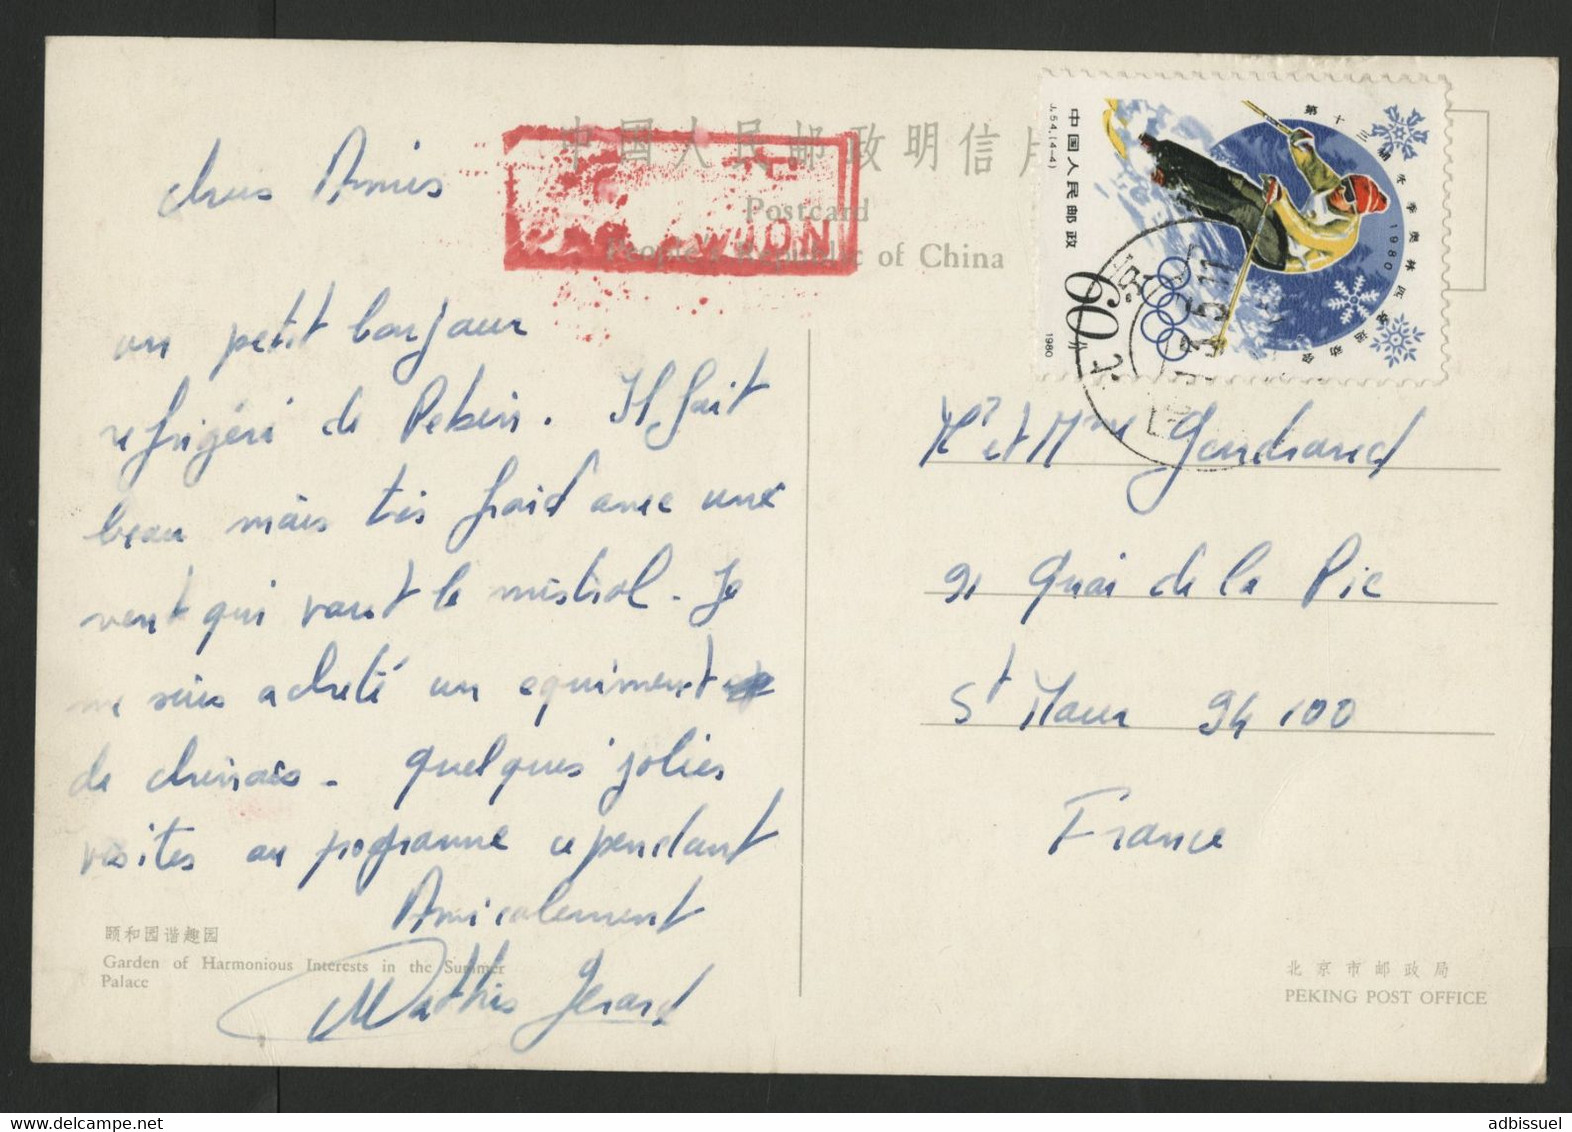 中国人民邮政明信片
Postcard
People's Republic of China
AVION
中国人民邮政
J.54.(4-4)
第十三届冬季奥林匹克运动会
1980
60分
1980
chers Amis
un petit bonjour
refrigéré de Pekin. Il fait
beau mais très froid avec une
vent qui vaut le mistral. Je
me suis acheté un equiment
de chinois. Quelques jolies
visites au programme cependant
Amicalement
Mathis Gérard
颐和园谐趣园
Garden of Harmonious Interests in the Summer
Palace
Mr et Mme Gendrand
91 Quai de la Pie
St Maur 94 100
France
北京市邮政局
PEKING POST OFFICE
adbissuel